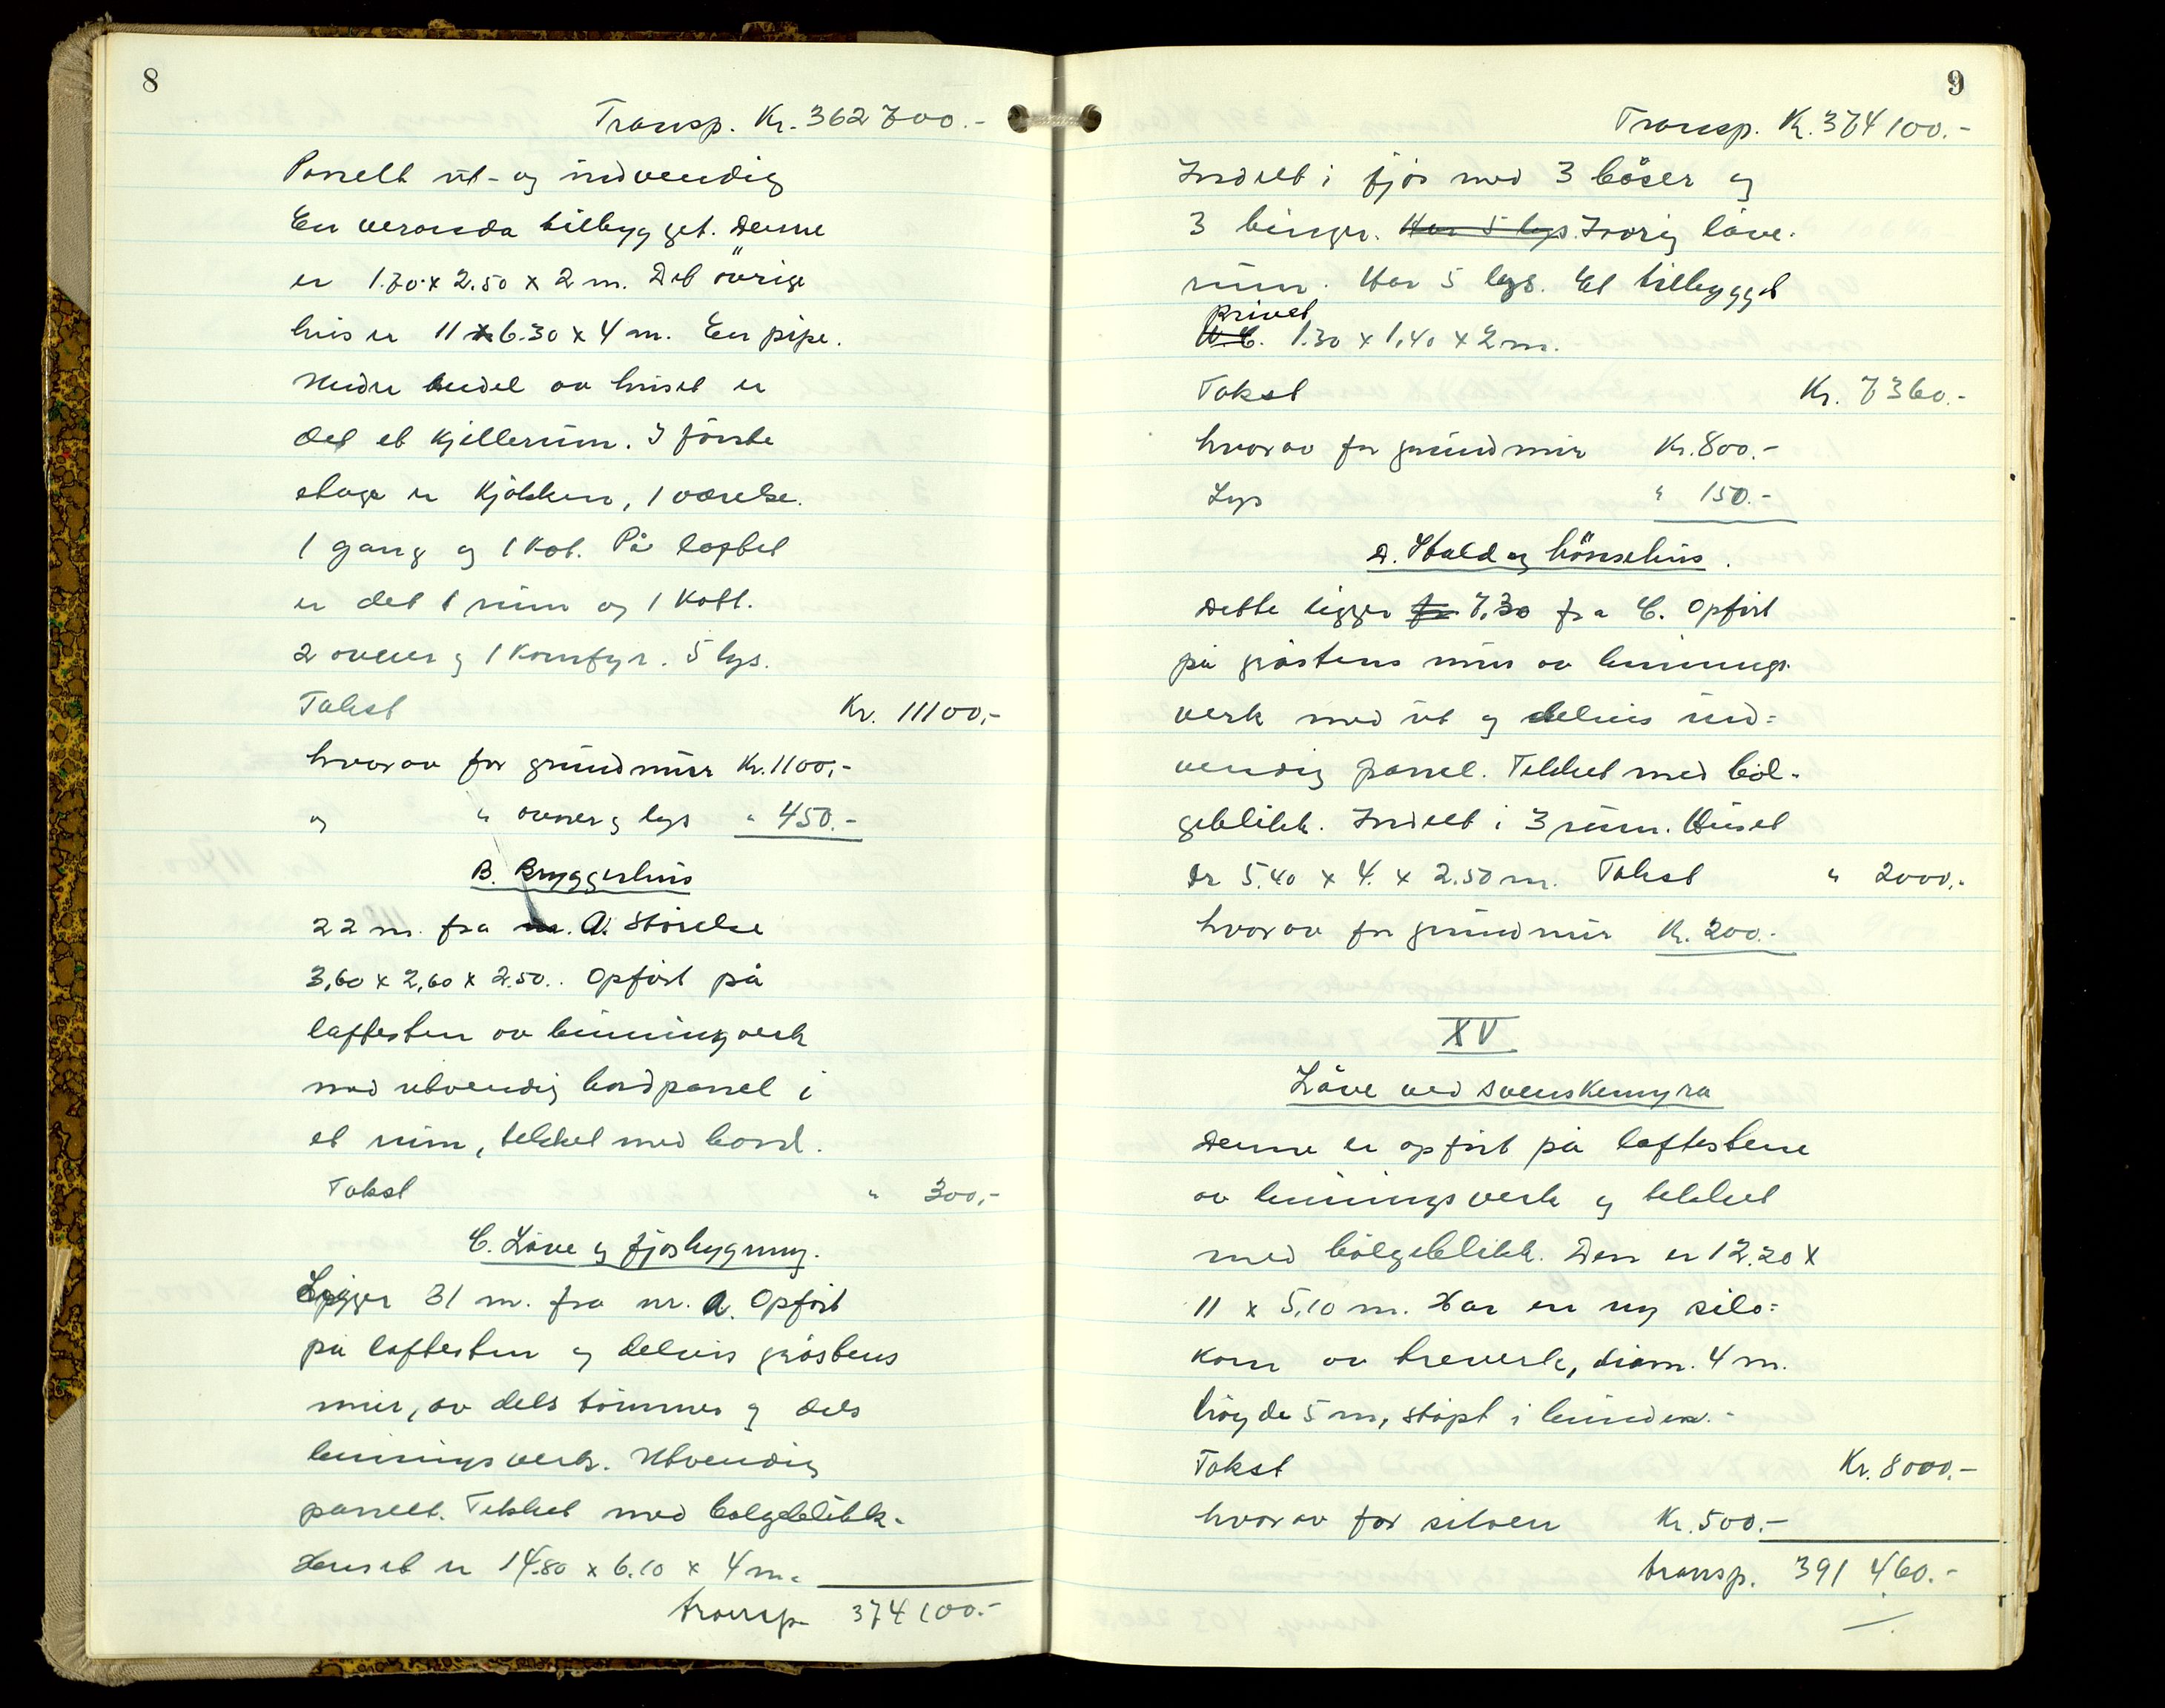 8
Transp. Kr. 362700.-
Panelt ut- og indvendig
En veranda tilbygget. Denne
er 1.70 x 2.50 x 2 m. Det övrige
hus er 11 x 6.30 x 4 m. En pipe.
Under endel av huset er
det et kjellerum. I förste
etage er kjökken, 1 værelse.
1 gang og 1 kot. På loftet
er det 1 rum og 1 kott.
2 ovner og 1 komfyr. 5 lys.
Takst Kr. 11100,-
hvorav for grundmur Kr. 1100,-
og " ovner og lys " 450.-
B. Bryggerhus
22 m. fra nr. A. Störelse
3,60 x 2,60 x 2.50.. Opfört på
løftesten av binningverk
med utvendig bordpanel i
et rum, tekket med bord.
Takst " 300,-
C. Låve og fjosbygning.
Ligger 31 m. fra nr. A. Opfört
på løftesten og delvis gråstens
mur, av dels tömmer og dels
binningsverk. Utvendig
panelt. Tekket med bølgeblikk.
Huset er 14.80 x 6.10 x 4 m.
transp. 374100.-
9
Transp. Kr. 374100.-
Inndelt i fjös med 3 båser og
3 binger. Har 5 lys. Forövrig låve.
rum. Har 5 lys. Et tilbygget
privet
W.C. 1.30 x 1,40 x 2 m.
Takst Kr. 7360.-
hvorav for grundmur Kr. 800.-
Lys " 150.-
D. Stald og hönsehus.
Dette ligger fr 7,30 fra C. Opfört
på gråstens mur av binnings
verk med ut og delvis ind=
vendig panel. Tekket med böl-
geblikk. Inndelt i 3 rum. Huset
er 5.40 x 4. x 2.50 m. Takst " 2000.-
hvorav for grundmur Kr. 200.-
XV
Låve ved Svenskemyra
Denne er opfört på løftestene
av binningsverk og tekket
med bölgeblikk. Den er 12.20 x
11 x 5,10 m. Har en ny silo=
kom av treverk, diam. 4 m.
höyde 5 m, stöpt i bunden.-
Takst Kr. 8000.-
hvorav for siloen Kr. 500.-
transp. 391 460.-